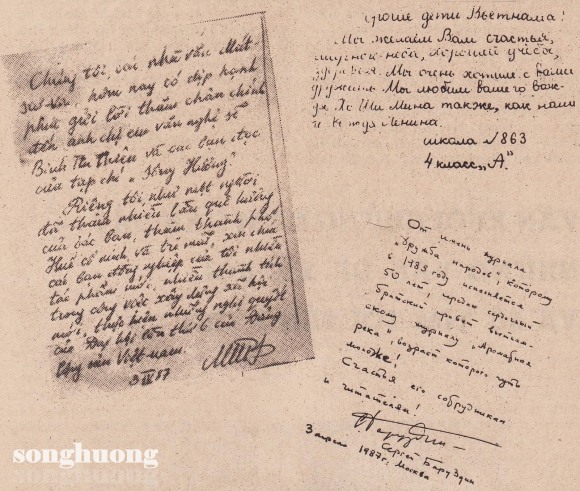 Chúng tôi, các nhà văn Mát-
scơ-va, hôm nay có dịp hạnh
phúc gửi lời thăm chân chính
đến anh chị em văn nghệ sĩ
Bình Trị Thiên và các bạn đọc
của tạp chí „Sông Hương”
Riêng tôi, như một người
đã thăm nhiều lần quê hương
của các bạn, thăm thành phố
Huế cổ kính và trẻ mãi, xin chúc
các bạn đồng nghiệp của tôi nhiều
tác phẩm mới, nhiều thành tích
trong công việc xây dựng xã hội
mới, thực hiện những nghị quyết
của Đại hội lần thứ 6 của Đảng
cộng sản Việt-nam.
3 IV 87
дети Вьетнама!
Мы желаем Вам счастья,
неба, хорошей учёбы,
здоровья. Мы очень хотим с вами
дружить. Мы любим вашего вож-
дя Хо Ши Мина также, как наши
вождя Ленина.
школа №863
4 класс „А”.
От имени журнала
„Дружба народов”, которому
в 1989 году исполняется
50 лет, передаю сердечный
братский привет вьетнам-
скому журналу „Ароматная
река”, возраст которого чуть
моложе!
Счастья его сотрудникам
и читателям!
Сергей Баруздин
3 апреля 1987 г. Москва
songhuong